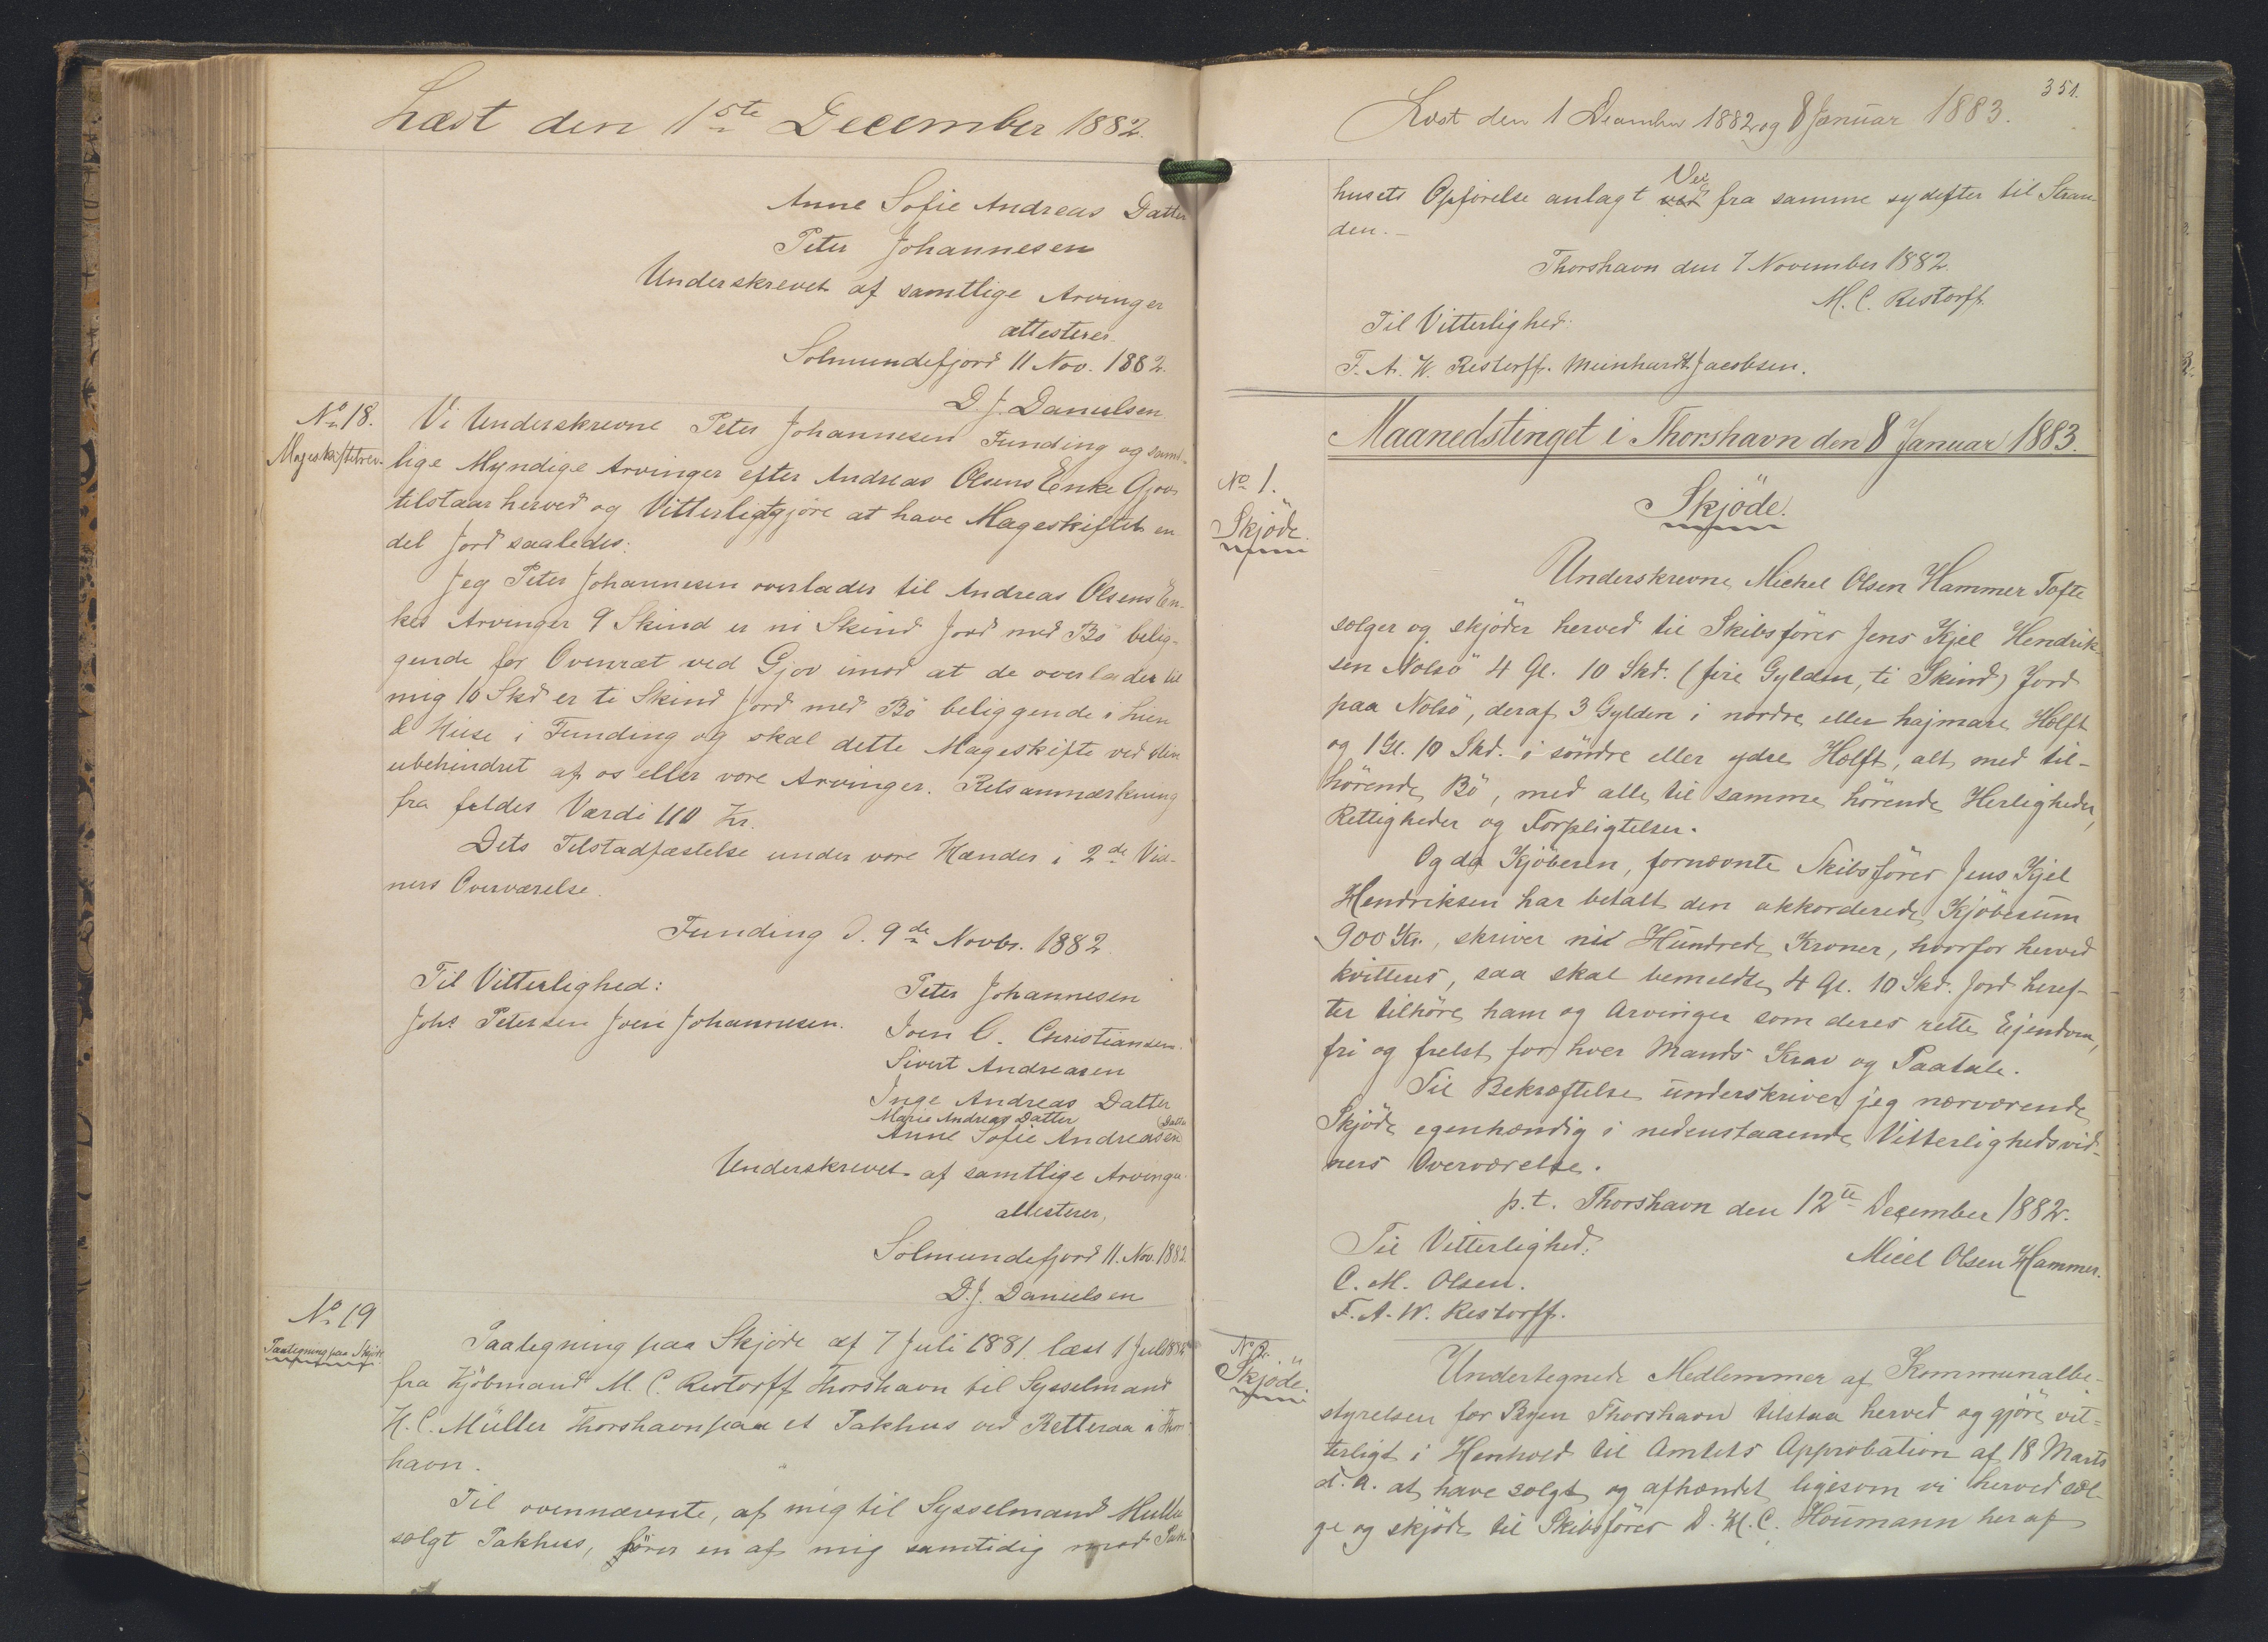 Læst den 1ste December 1882.
Anne Sofie Andreas Datter
Peter Johannesen
Underskrevet af samtlige Arvinger
attesteres.
Solmundefjord 11 Nov. 1882.
D. J. Danielsen
No 18.
Mageskiftebrev.
Vi Underskrevne Peter Johannesen Funding og samt-
lige Myndige Arvinger efter Andreas Olsens Enke Gjov
tilstaar herved og Vitterligtgjøre at have Mageskiftet en
del Jord saaledes:
Jeg Peter Johannesen overlader til Andreas Olsens En-
kes Arvinger 9 Skind er ni Skind Jord med Bö belig-
gende for Ovenræt ved Gjov imod at de overlader til
mig 10 Skd er ti Skind Jord med Bö beliggende i hien
Huse i Funding og skal dette Mageskifte ved
ubehindret af os eller vore Arvinger. Retsanmærkning
fra faldes Værdi 110 Kr.
Dets Tilstadfæstelse under vore Hænder i 2de Vid-
ners Overværelse.
Funding d. 9de Novbr. 1882.
Til Vitterlighed:
Johs Petersen Joen Johannesen.
Peter Johannesen
Joen C. Christiansen.
Sivert Andreasen
Inge Andreas Datter
Marie Andreas Datter
Anne Sofie Andreasen Datter
Underskrevet af samtlige Arvinger
attesterer,
Solmundefjord 11. Nov. 1882.
D. J. Danielsen
No 19
Paategning paa Skjöde
Paategning paa Skjöde af 7 Juli 1881. læst 1 Juli 1882
fra Kjöbmand M. C. Restorff Thorshavn til Sysselmand
H. C. Müller Thorshavn paa et Pakhus ved Retteraa i Thors
havn.
Til ovennævnte, af mig til Sysselmand Müller
solgt Pakhus, hører en af mig samtidig med Pak-
351.
Læst den 1 December 1882 og 8 Januar 1883.
husets Opførelse anlagt ved Vei fra samme sydefter til Stran
den.-
Thorshavn den 7 November 1882.
M. C. Restorff.
Til Vitterlighed:
F. A. W. Restorff. Meinhardt Jacobsen.
Maanedstinget i Thorshavn den 8 Januar 1883.
No 1.
Skjöde.
Skjöde.
Underskrevne Michel Olsen Hammer Tofte
sælger og skjöder herved til Skibsfører Jens Kjel Hendrik-
sen Nolsö 4 Gl. 10 Skd. (fire Gylden, ti Skind) Jord
paa Nolsö, deraf 3 Gylden i nordre eller hajmare Hølft
og 1 Gl. 10 Skd. i söndre eller ydre Hølft, alt med til-
hørende Bö, med alle til samme hørende Herligheder,
Rettigheder og Forpligtelser.
Og da Kjøberen, fornævnte Skibsfører Jens Kjel
Hendriksen har betalt den akkorderede Kjøbesum
900 Kr., skriver ni Hundrede Kroner, hvorfor herved
kvitteres, saa skal bemeldte 4 Gl. 10 Skd. Jord heref-
ter tilhøre ham og Arvinger som deres rette Ejendom,
fri og frelst for hver Mands Krav og Paatale.
Til Bekræftelse underskriver jeg nærværende
Skjöde egenhændig i nedenstaaende Vitterlighedsvid-
ners Overværelse.
p.t. Thorshavn den 12te December 1882.
Til Vitterlighed:
Micel Olsen Hammer.
C. M. Olsen.
F. A. W. Restorff.
No 2.
Skjöde.
Undertegnede Medlemmer af Kommunalbe-
styrelsen for Byen Thorshavn tilstaa herved og gjøre vit-
terligt i Henhold til Amtets Approbation af 18 Marts
d. A. at have solgt og afhændet ligesom vi herved sæl-
ge og skjöde til Skibsfører D. H. C. Houmann her af